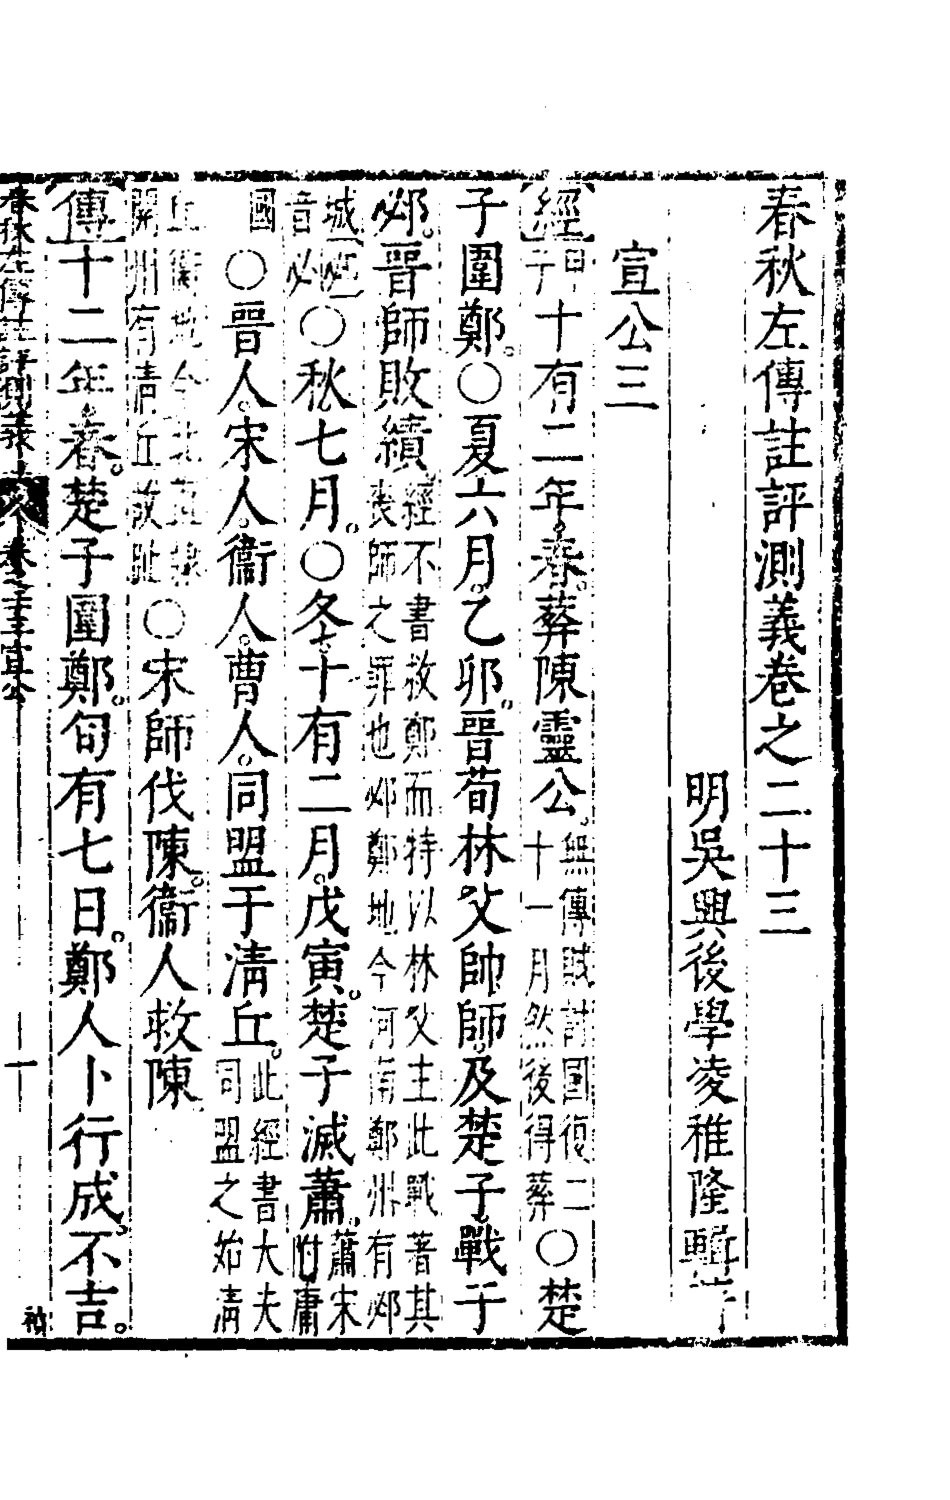 春秋左傳註評測義卷之二十三
明吳興後學凌稚隆輯
宣公三
經甲子十有二年春。葬陳靈公。無傳賊討國復二十一月然後得葬○楚
子圍鄭。○夏六月。乙卯。晉荀林父帥師。及楚子戰于
邲。晉師敗績。經不書救鄭而特以林父主此戰著其喪師之罪也邲鄭地今河南鄭州有邲
城邲音必○秋七月。○冬。十有二月。戊寅。楚子滅蕭。蕭宋附庸
國○晉人。宋人。衞人。曹人。同盟于清丘。此經書大夫同盟之始清
丘衞地今北直隸開州有清丘故趾○宋師伐陳。衞人救陳
傳十二年。春。楚子圍鄭。旬有七日。鄭人卜行成。不吉。
春秋左傳註評測義 卷之二十三宣公 一